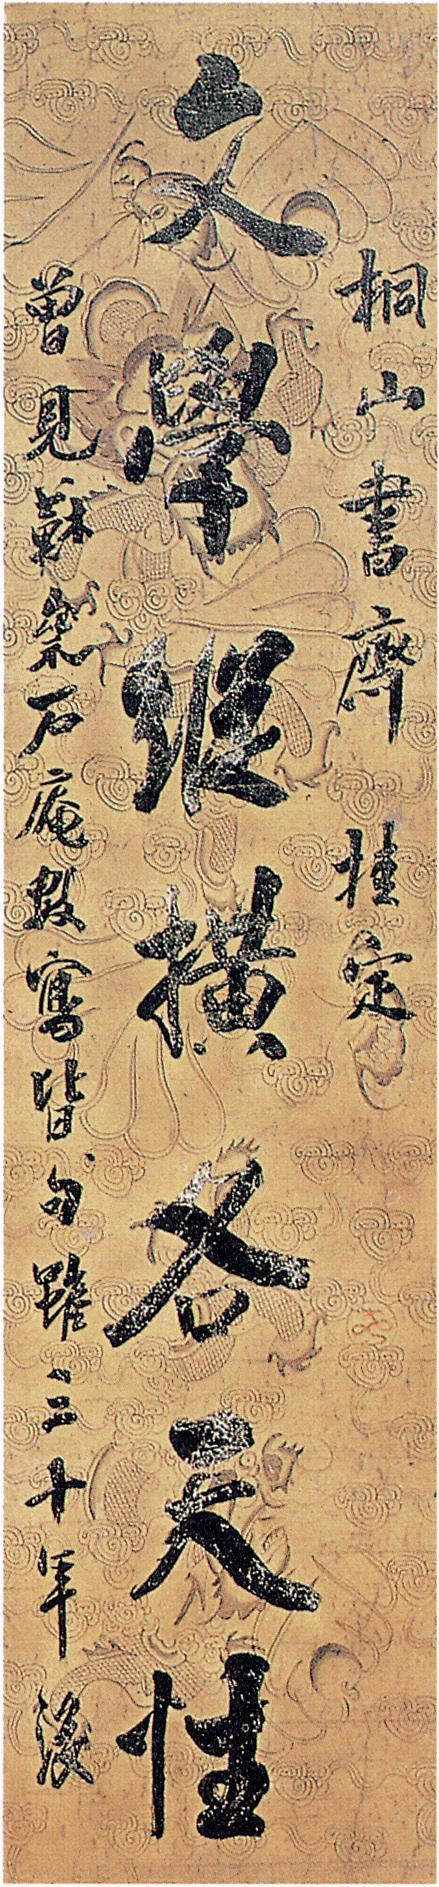 桐山書齋 挂定
文學縱橫各天性
曾見蘇石庵寫皆句三十年後